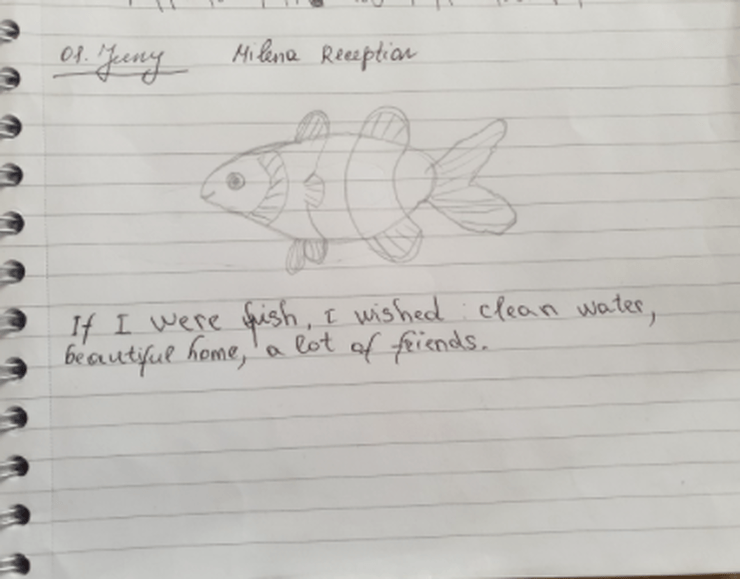 01. Juny Milena Reception
If I were fish, I wished : clean water,
beautiful home, a lot of friends.